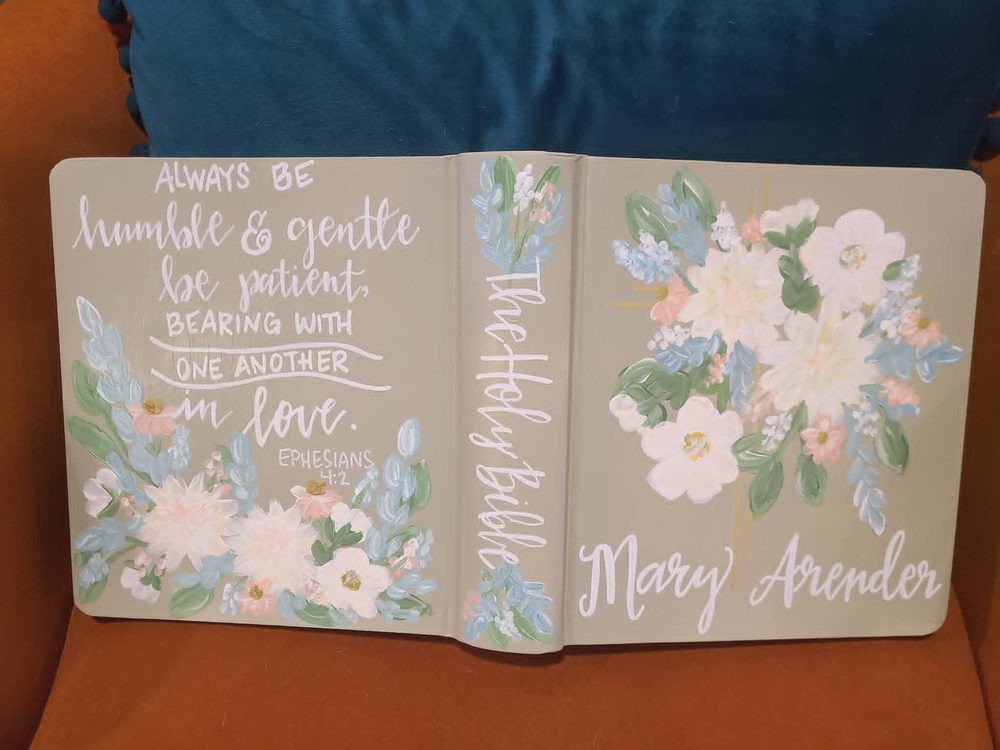 ALWAYS BE
humble & gentle
be patient,
BEARING WITH
ONE ANOTHER
in love.
EPHESIANS
4:2
The Holy Bible
Mary Arender